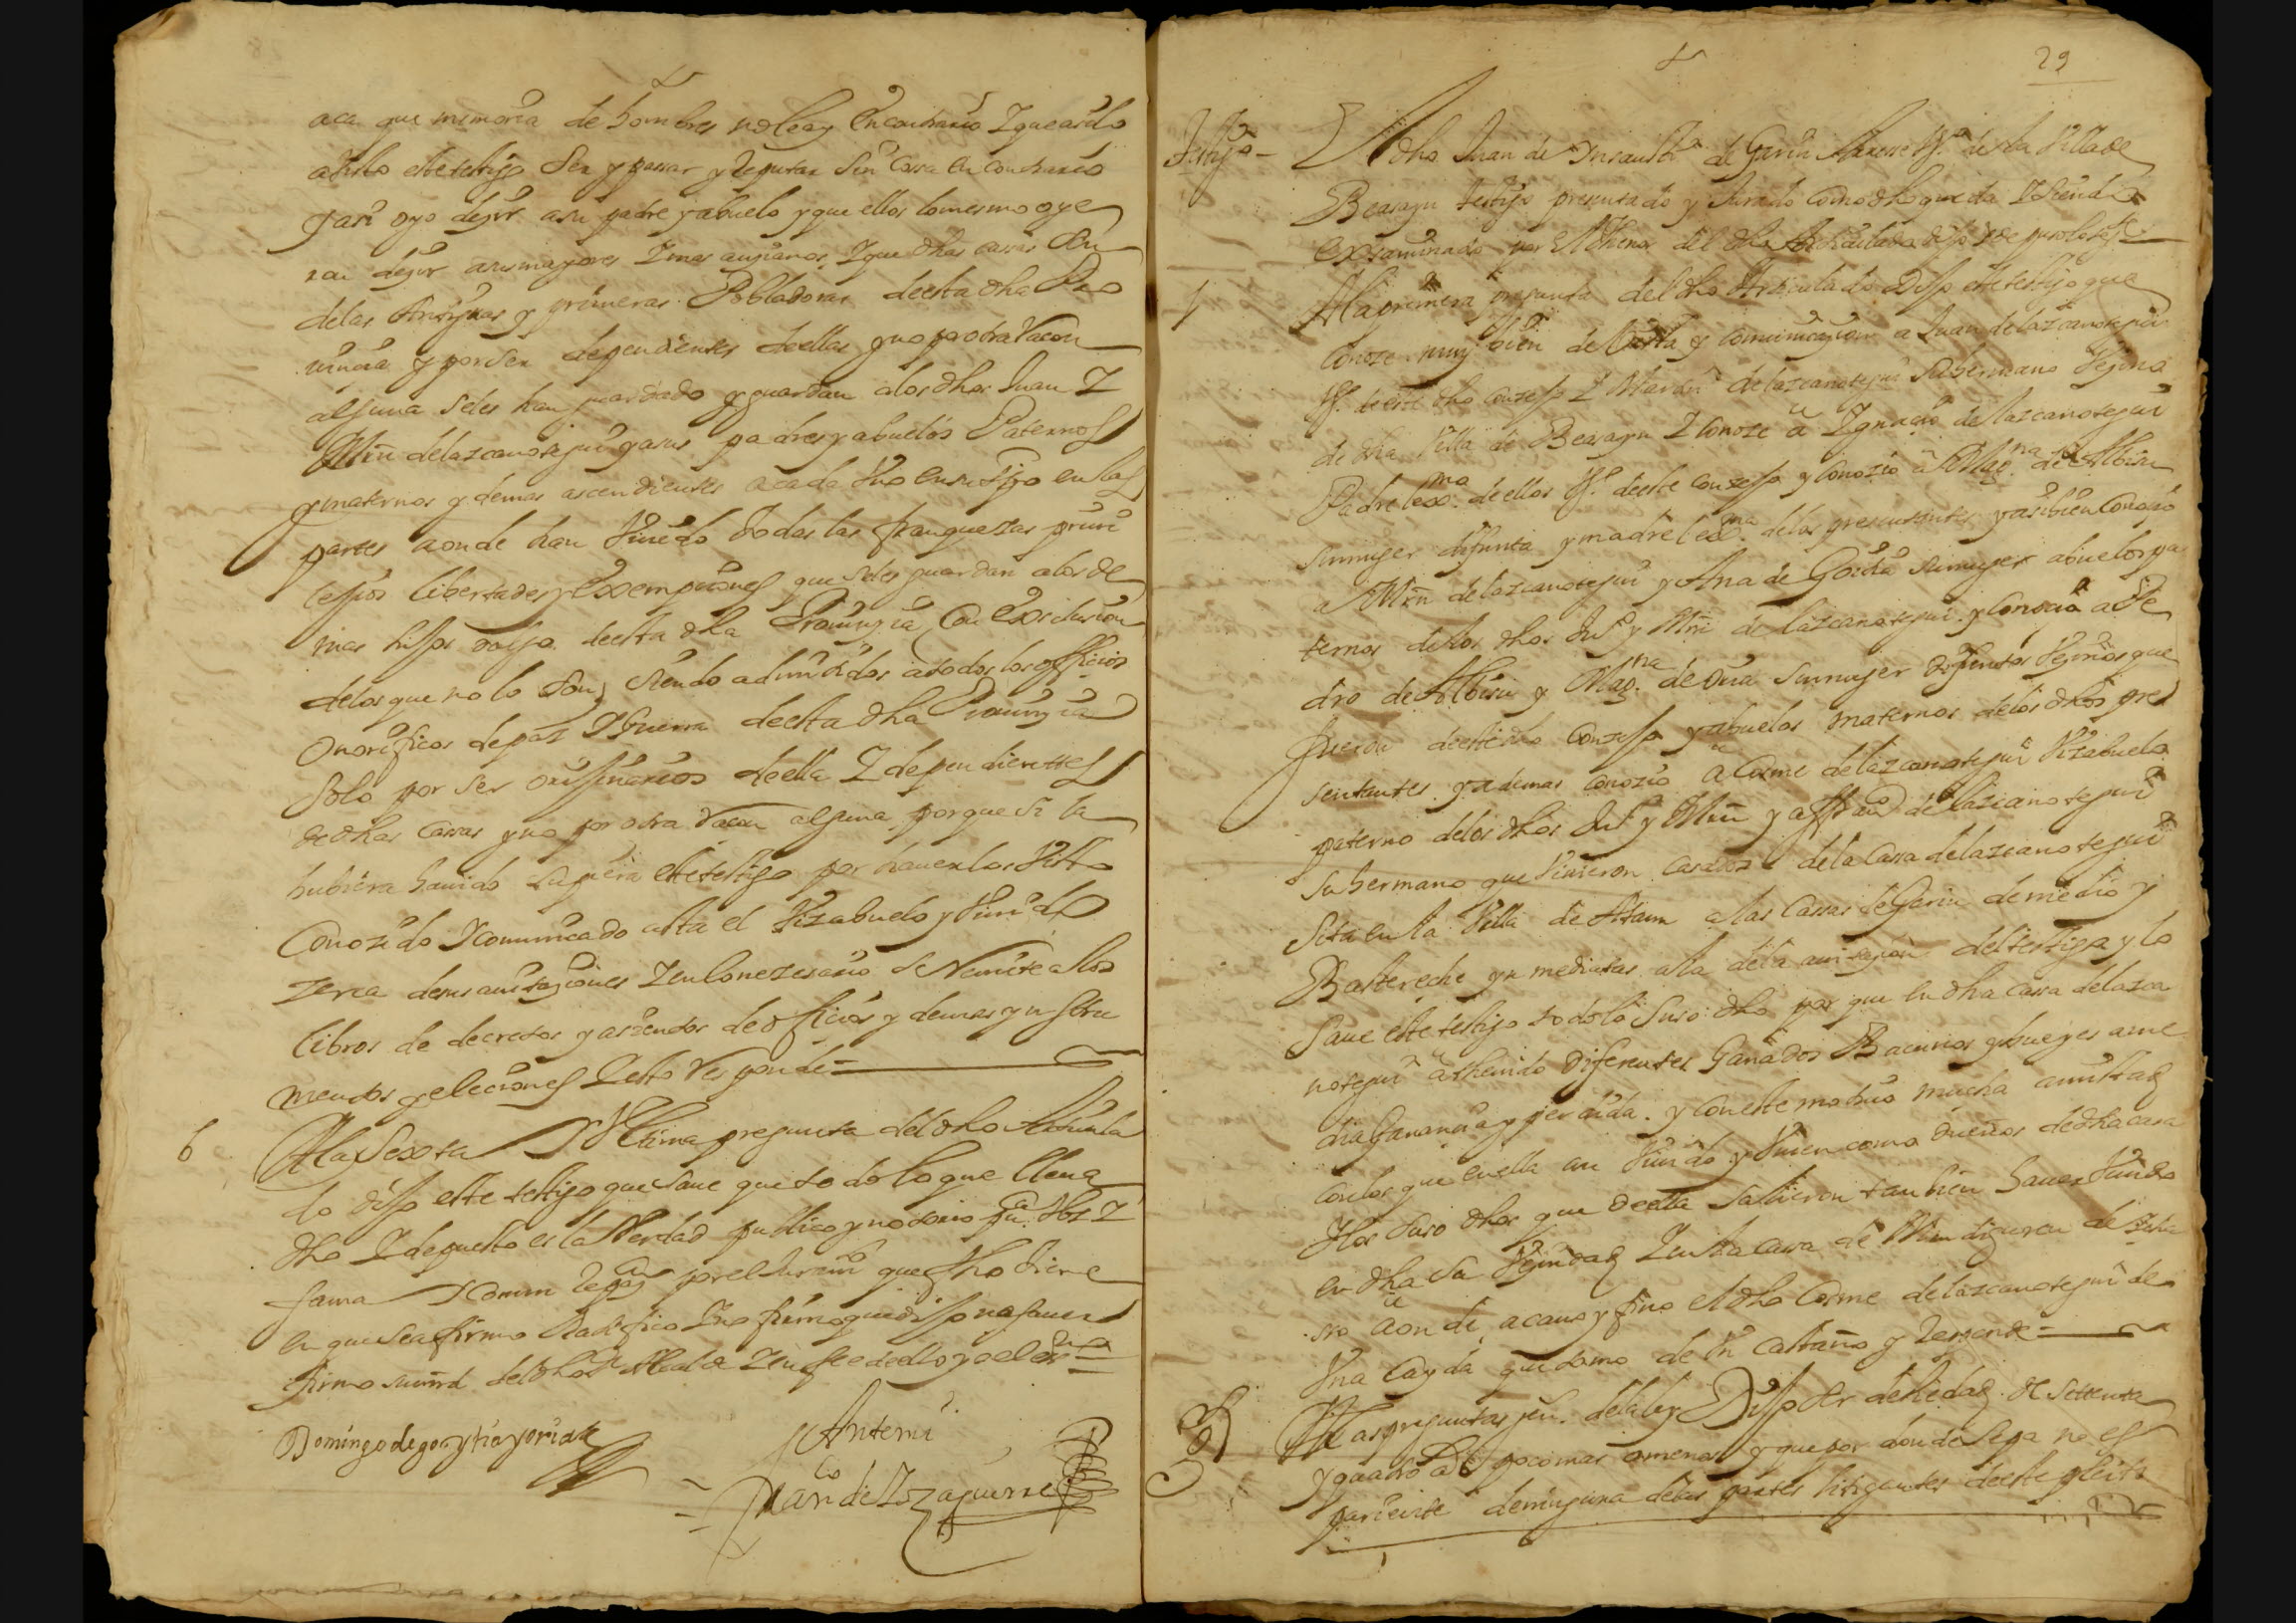 aca que memoria de hombres no le ay en contrario Y que asi lo
a visto este testigo ser y passar y reputar sin cossa en contrario
y asi oyo deçir a su padre y abuelo y que ellos lo mesmo oye
ran deçir a sus mayores Y mas ançianos, Y que dhas cassas son
de las Antiguas y primeras Pobladoras de esta dha Pro
uinçia y por ser dependientes de ellas y no por otra raçon
alguna se les han guardado y guardan a los dhos Juan Y
Min de lazcanotegui y a sus padres y abuelos Paternos
y maternos y demas ascendientes a cada vno en su tpo en las
partes a onde han viuido todas las franquezas priui
lejios libertades y exsempçiones que se les guardan a los de
mas hijos dalgo de esta dha Prouinçia con exsclusion
de los que no lo son, siendo admitidos a todos los officios
Onorificos de paz Y Guerra de esta dha Prouinçia
solo por ser orijinarios de ella Y dependientes
de dhas cassas y no por otra raçon alguna porque si la
hubiera hauido supiera este testigo por hauerlos visto
Conozido Y comunicado asta el vizabuelo y viuido
zerca de sus auitaçiones Y en lo nezesario se remite a los
libros de decretos y asientos de ofiçios y demas ynstru
mentos y eleçiones Y esto responde =
6 A la Sexsta Y Vltima pregunta del dho Articula
do dijo este testigo que saue que todo lo que lleua
dho Y depuesto es la Verdad publico y notorio pca Voz Y
fama Y comun por el Juramto que fho tiene
en que se afirmo Ratifico Y no firmo que dijo no sauer
firmo su md del dho Sr Alcalde Y en fee de ello yo el esno =
Domingo de goyytia y oriar
Antemi
Juan de Yzaguirre
29
Testigo - El dho Juan de Ynsausti de Garin Vo de la Villa de
Beasayn testigo presentado y Jurado como dho queda Y siendo
exsaminado por el thenor del dho Articulado dijo y depuso lo sigte
1 A la primera pregunta del dho Articulado Dijo este testigo que
Conoze muy bien de Vista y Comunicaçion a Juan de lazcanotegui
Vo de este dho Conzejo Y Martin de lazcanotegui su hermano Veçino
de dha Villa de Beasayn Y Conoze a Ygnaçio de lazcanotegui
Padre lexmo de ellos Vo de este conzejo y Conozio a Magna de Albisu
su muger difunta y madre lexma de los presentantes y asibien Conozio
a Min de lazcanotegui y Ana de Goitia su muger abuelos pa
ternos de los dhos Jun y Min de lazcanotegui. y Conozio a Pe
dro de Albisu y Magna de su muger difuntos Veçinos que
fueron de este dho Conzejo y abuelos maternos de los dhos pre
sentantes. y ademas conozio a Cosme de lazcanotegui Vizabuelo
paterno de los dhos Jun y Min y a de lazcanotegui
su hermano que Vinieron casados de la Cassa de lazcanotegui
Sita en la Villa de Ataun a las Cassas de Garin de medio y
Bastereche ynmediatas a la de la auitaçion del testigo y lo
Saue este testigo todo lo suso dho por que en dha Cassa de lazca
notegui a thenido Diferentes Ganados Bacunos y bueyes a me
dia Ganançia y perdida. y Con este motiuo mucha amistad
con los que en ella an viuido y viuen como dueños de dha casa
Y los suso dhos que de ella salieron tambien hauer viuido
en dha su Veçindad Y en la casa de
a onde acauo y fino el dho Cosme de lazcanotegui de
Vna Cayda que tomo de Vn Castaño y responde =
A las preguntas gen. de la ley Dijo ser de hedad de settenta
y quatro as poco mas o menos y que por donde sepa no es
pariente de ninguna de las partes litigantes de este pleito